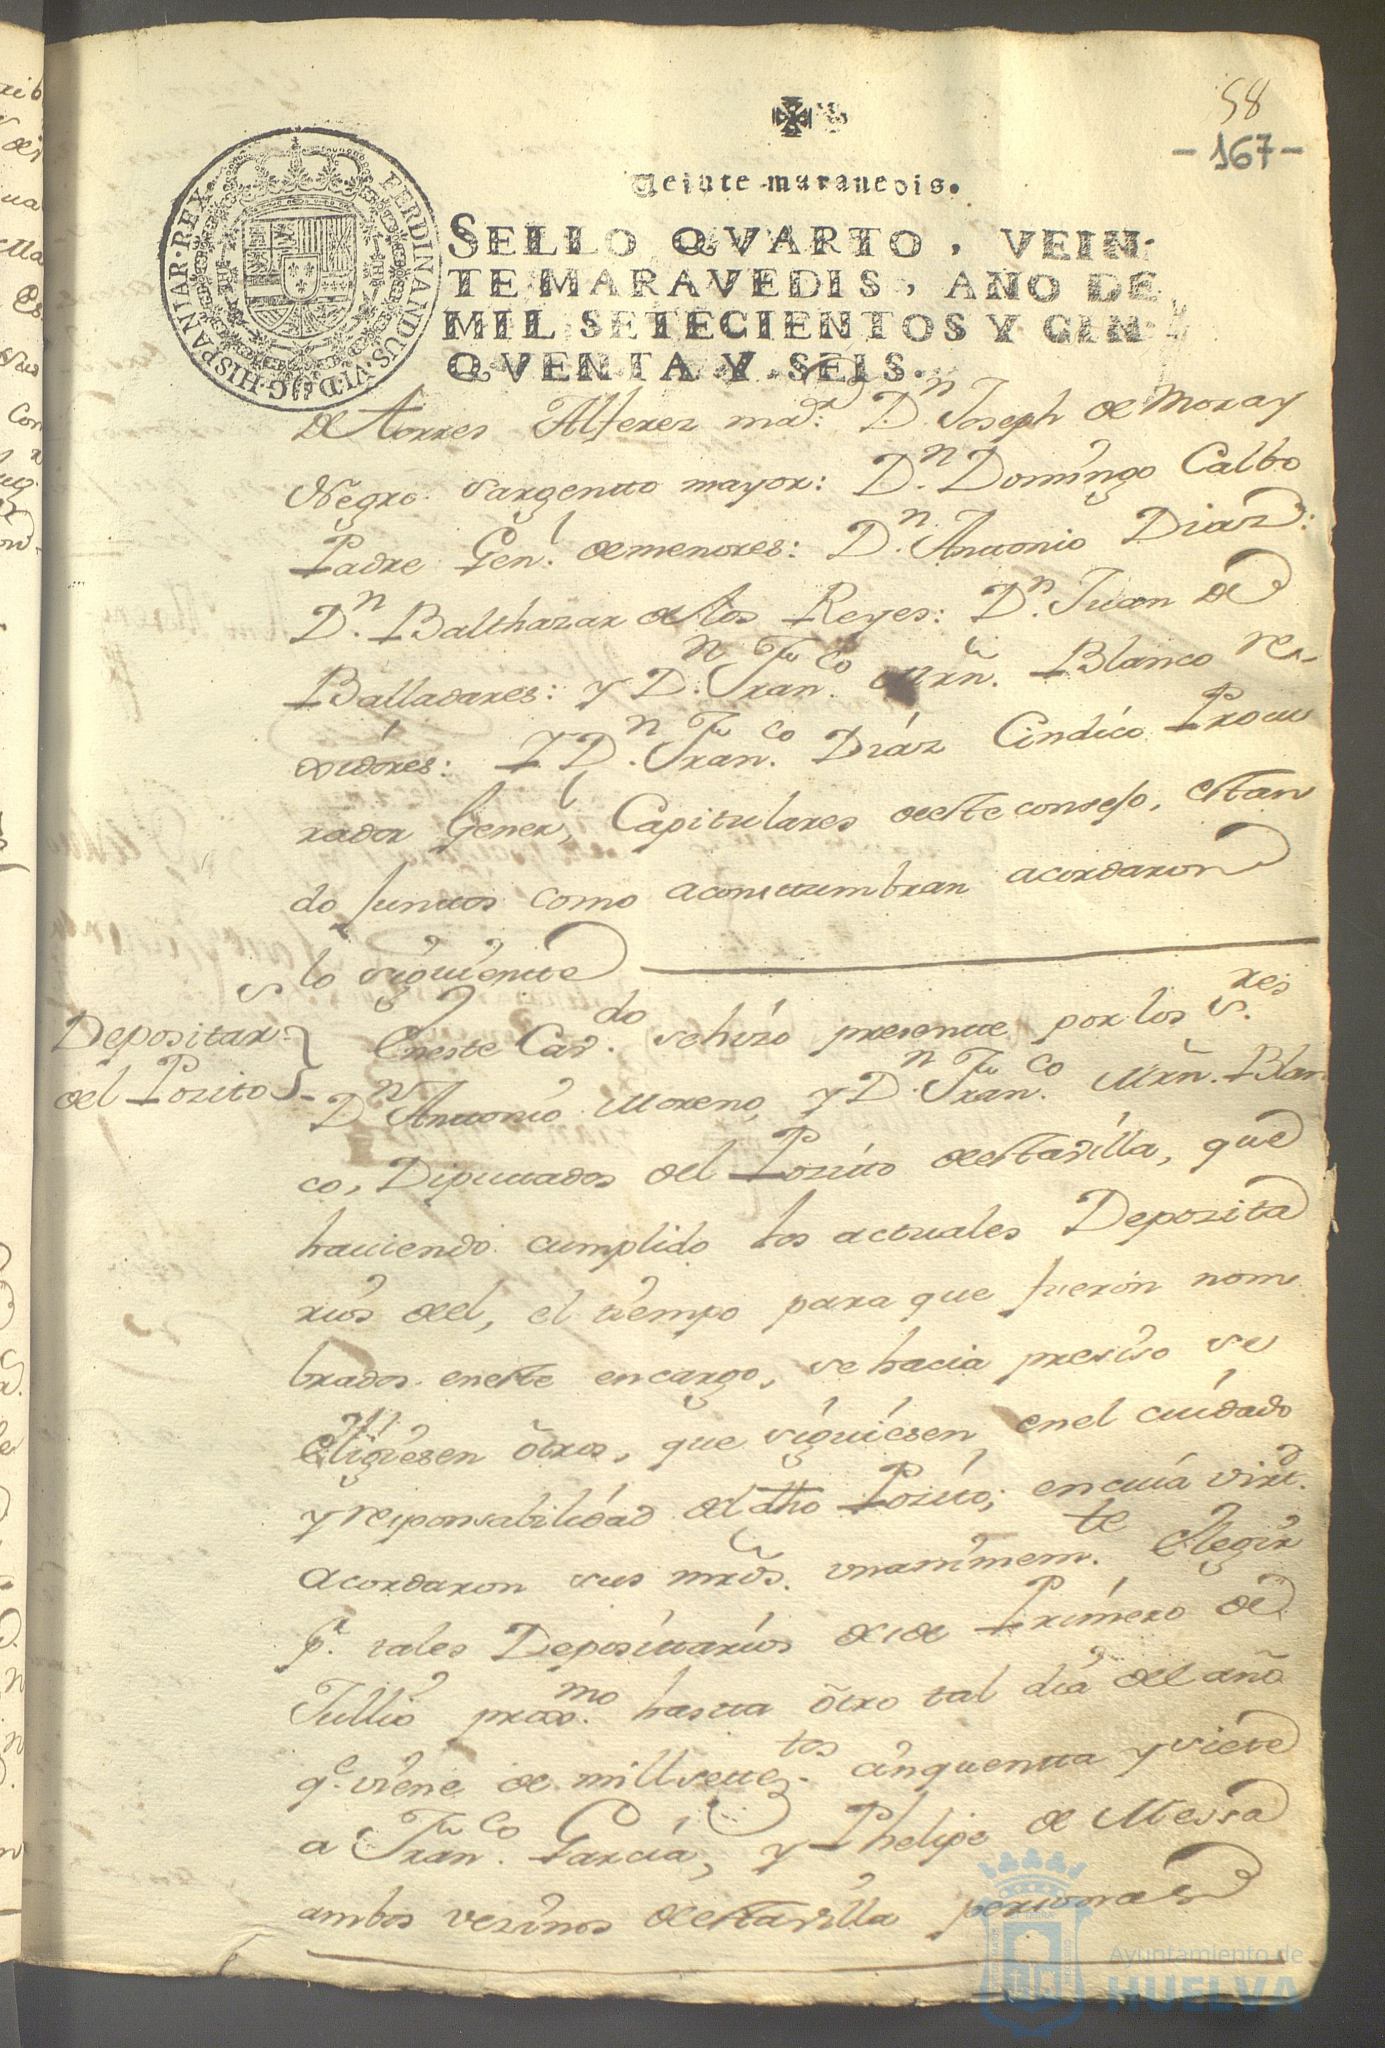 58
- 167 -
Veinte maravedis.
SELLO QVARTO, VEIN-
TE MARAVEDIS, AÑO DE
MIL SETECIENTOS Y CIN-
QVENTA Y SEIS.
FERDINANDUS·VI·D·G·HISPANIAR·REX
de torres Alferez mar: Dn Joseph de Mora y
Negro sargentto mayor: Dn Domingo Calbo
Padre Genl. de menores: Dn Anttonio Diaz:
Dn Balthazar de los Reyes: Dn Juan de
Balladares: y Dn Franco Mrñ. Blanco re-
xidores: Y Dn Franco Diáz Cindico Procu
rador Generl, Capitulares de este consejo, estan
do junttos como aconsttumbran acordaron
lo siguientte
Depositar.
del Pozito
En este Cavdo se hizo presentte por los Sres
Dn Anttonio Moreno, y Dn Franco Mrñ. Blan
co, Diputtados del Pozitto de esta villa, que
haviendo cumplido los actuales Deposita
rios del, el tiempo para que fueron nom
brados en este encargo, se hacia presiso se
Eligiesen ótros, que siguiesen en el cuidado
y responsabilidad del dho Pozitto; en cuia virtd.
acordaron sus mrds. unanimemte. Elegir
pr. tales Deposittarios desde Primero de
Jullio proxmo. hastta ótro tal dia del año
qe. viene de mill settetos. cinquentta y siete
a Franco Garcia, y Phelipe de Messa
ambos vezinos de esta villa personas
Ayuntamiento de
HUELVA